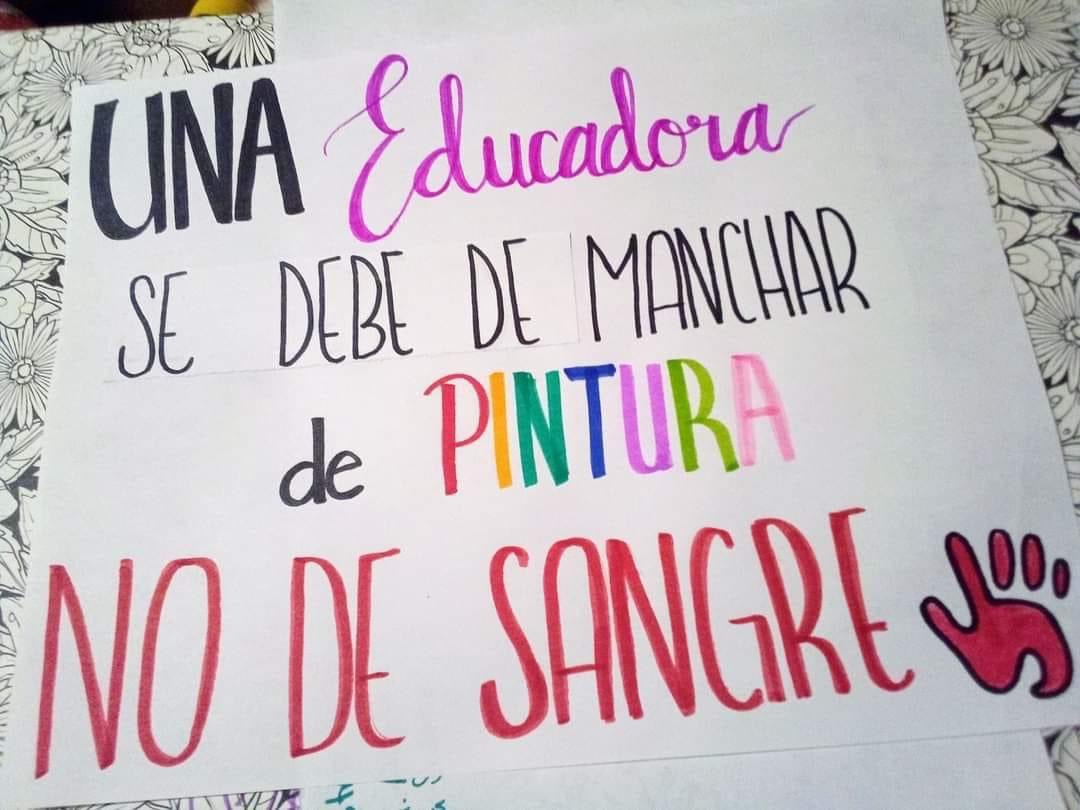 UNA Educadora
SE DEBE DE MANCHAR
de PINTURA
NO DE SANGRE